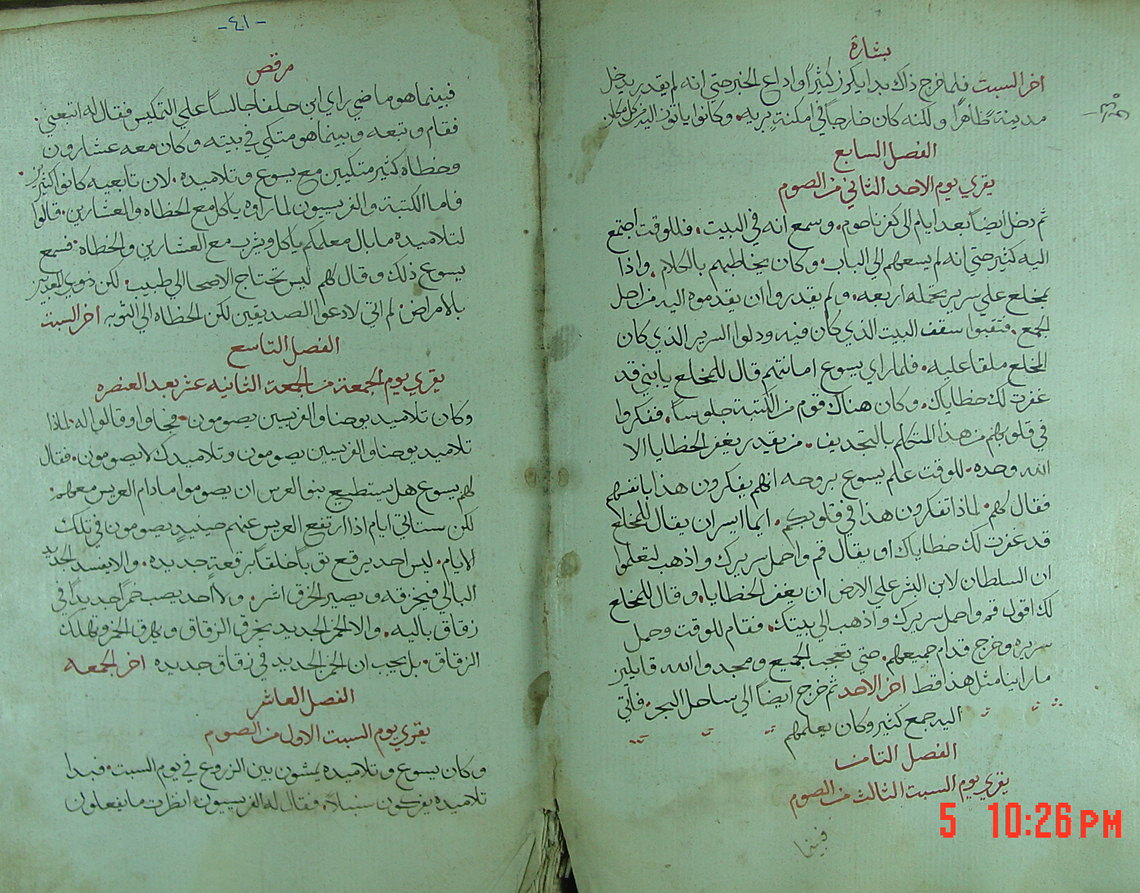 بشارة
اخر السبت فلما خرج ذاك بدا يكرز كثيرًا واذاع الخبر حتي انه لم يقدر يدخل
مدينة ظاهرًا ولكنه كان خارجًا في امكنة بريه. وكانوا ياتون اليه من كل مكان
الفصل السابع
يقري يوم الاحد الثاني من الصوم
ثم دخل ايضًا بعد ايام الي كفرناحوم. وسمع انه في البيت. فللوقت اجتمع
اليه كثير حتي انه لم يسعهم الي الباب. وكان يخاطبهم بالكلام. واذا
بمخلع علي سرير يحمله اربعه. ولم يقدروا ان يقدموه اليه من اجل
الجمع. فنقبوا سقف البيت الذي كان فيه ودلوا السرير الذي كان
المخلع ملقا عليه. فلما راي يسوع امانتهم قال للمخلع يا بني قد
غفرت لك خطاياك. وكان هناك قوم من الكتبة جلوسًا. ففكروا
في قلوبهم من هذا المتكلم بالتجديف. من يقدر يغفر الخطايا الا
الله وحده. للوقت علم يسوع بروحه انهم يفكرون هذا بانفسهم
فقال لهم. لماذا تفكرون هذا في قلوبكم. ايما ايسر ان يقال للمخلع
قد غفرت لك خطاياك او يقال قم واحمل سريرك واذهب لتعلموا
ان السلطان لابن البشر علي الارض ان يغفر الخطايا. وقال للمخلع
لك اقول قم واحمل سريرك واذهب الي بيتك. فقام للوقت وحمل
سريره وخرج قدام جميعهم. حتي تعجب الجميع ومجدوا الله قايلين
ما راينا مثل هذا قط اخر الاحد ثم خرج ايضًا الي ساحل البحر. فاتي
اليه جمع كثير وكان يعلمهم
الفصل الثامن
يقري يوم السبت الثالث من الصوم
فبينما
5 10:26 PM
-٤١-
مرقص
فبينما هو ماضي راي ابن حلفا جالسًا علي التمكيس فقال له اتبعني.
فقام وتبعه وبينما هو متكي في بيته وكان معه عشارون
وخطاه كثير متكيين مع يسوع وتلاميذه. لان تابعيه كانوا كثيرين.
فاما الكتبة والفريسيون لما راوه ياكل مع الخطاه والعشارين. قالوا
لتلاميذه ما بال معلمكم ياكل ويشرب مع العشارين والخطاه. فسمع
يسوع ذلك وقال لهم ليس تحتاج الاصحا الي طبيب. لكن ذوي
بالامراض. لم اتي لادعوا الصديقين لكن الخطاه الي التوبه اخر السبت
الفصل التاسع
يقري يوم الجمعة من الجمعة الثانيه عشر بعد العنصره
وكان تلاميذ يوحنا والفريسين يصومون. فجاوا وقالوا له لماذا
تلاميذ يوحنا والفريسين يصومون وتلاميذك لا يصومون. فقال
لهم يسوع هل يستطيع بنو العرس ان يصوموا ما دام العريس معهم.
لكن ستاتي ايام اذا ارتفع العريس عنهم حينيذٍ يصومون في تلك
الايام. ليس احد يرقع ثوبًا خلقًا برقعةٍ جديده. والا يفسد الجديد
البالي فيخرقه ويصير الخرق اشر. ولا احد يصب خمرًا جديدًا في
زقاق باليه. والا الخمر الجديد يخرق الزقاق ويهرق الخمر وتهلك
الزقاق. بل يجب ان الخمر الجديد في زقاق جديده اخر الجمعه
الفصل العاشر
يقري يوم السبت الاول من الصوم
وكان يسوع وتلاميذه يمشون بين الزروع في يوم السبت. فبدا
تلاميذه يفركون سنبلاً. فقال له الفريسيون انظر ما يفعلون